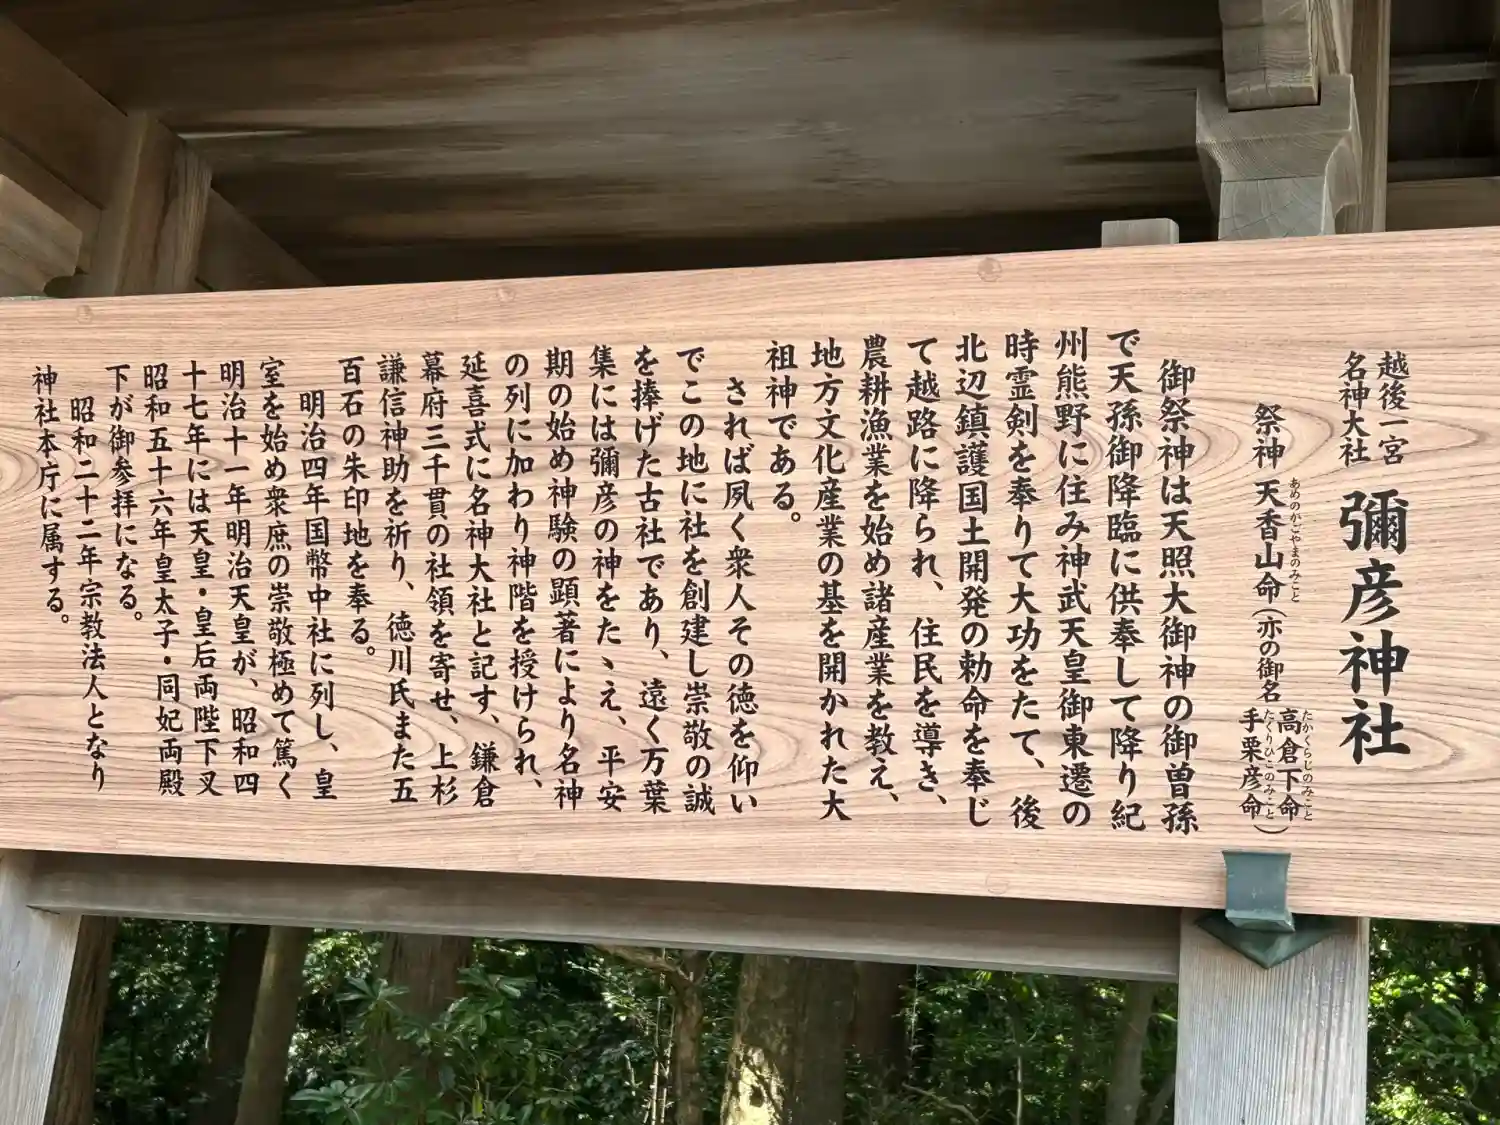 越後一宮
名神大社
彌彦神社
祭神 天香山命(亦の御名 高倉下命 手栗彦命)
あめのかごやまのみこと
たかくらじのみこと
たくりひこのみこと
御祭神は天照大御神の御曽孫
で天孫御降臨に供奉して降り紀
州熊野に住み神武天皇御東遷の
時霊剣を奉りて大功をたて、後
北辺鎮護国土開発の勅命を奉じ
て越路に降られ、住民を導き、
農耕漁業を始め諸産業を教え、
地方文化産業の基を開かれた大
祖神である。
されば夙く衆人その徳を仰い
でこの地に社を創建し崇敬の誠
を捧げた古社であり、遠く万葉
集には彌彦の神をたゝえ、平安
期の始め神験の顕著により名神
の列に加わり神階を授けられ、
延喜式に名神大社と記す、鎌倉
幕府三千貫の社領を寄せ、上杉
謙信神助を祈り、徳川氏また五
百石の朱印地を奉る。
明治四年国幣中社に列し、皇
室を始め衆庶の崇敬極めて篤く
明治十一年明治天皇が、昭和四
十七年には天皇・皇后両陛下又
昭和五十六年皇太子・同妃両殿
下が御参拝になる。
昭和二十二年宗教法人となり
神社本庁に属する。